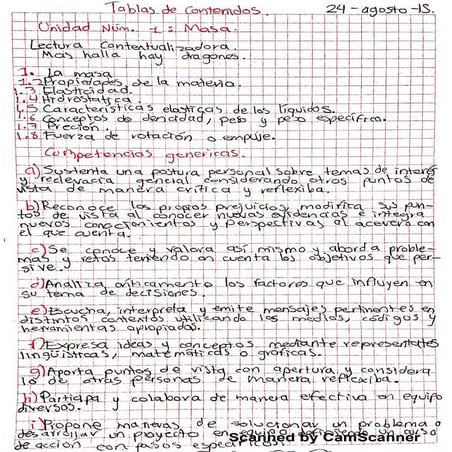 Tablas de contenidos. 24-agosto-15.
Unidad Núm. 1: Masa.
Lectura Contextualizadora.
Mas halla hay dragones.
1. La masa
1.2 Propiedades de la materia.
1.3 Elasticidad.
1.4 Hidrostatica.
1.5 Caracteristicas elasticas de los liquidos.
1.6 Conceptos de dencidad, peso y peso especifico.
1.7 Precion.
1.8 Fuerza de rotación o empuje.
Competencias genericas.
a) Sustenta una postura personal sobre temas de interés
y relevancia general considerando otros puntos de
vista de manera critica y reflexiba.
b) Reconoce los propios prejuicios, modifica sus pun-
tos de vista al conocer nuevas evidencias e integra
nuevos conocimientos y perspectivas al acevero con
el que cuenta.
c) Se conoce y valora asi mismo y aborda proble-
mas y retos teniendo en cuenta los objetivos que per-
sive.
d) Analiza criticamente los factores que influyen en
su tema de decisiones.
e) Escucha, interpreta y emite mensajes pertinentes en
distintos contextos utilisando los medios, codigos y
herramientas apropiados.
f) Expresa ideas y conceptos mediante representates
lingüisticas, matemáticas o graficas.
g) Aporta puntos de vista con apertura y considera
lo de otras personas de manera reflexiba.
h) Participa y colabora de manera efectiva en equipo
diversos.
i) Propone maneras de solucionar un problema o
desarrollar un proyecto en equipo un curso
de acción con pasos especificos.
Scanned by CamScanner